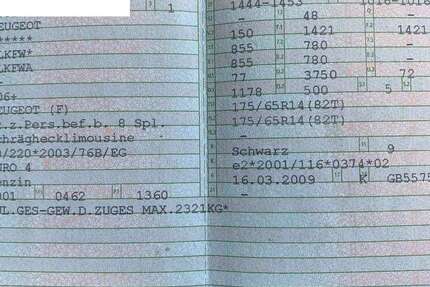 1
EUGEOT
*****
LKFW*
LKFWA
–
06+
EUGEOT (F)
z.Pers.bef.b. 8 Spl.
chrägheclimousine
/220*2003/76B/EG
URO 4
enzin
001 0462 1360
UL.GES-GEW.D.ZUGES MAX.2321KG*
1444-1453 1016-1016
– 48 –
150 1421 1421
855 780 –
855 780 –
77 3750 72
1178 500 5
175/65R14(82T)
175/65R14(82T)
–
Schwarz 9
e2*2001/116*0374*02
16.03.2009 K GB5575
–